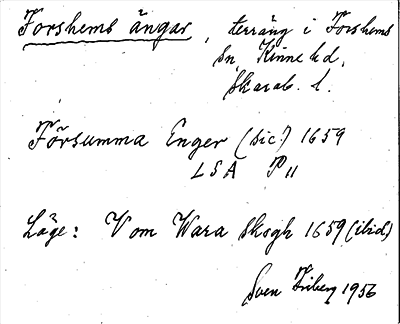 Forshems ängar, terräng i Forshems
Sn, Kinne hd,
Skarab. l.
Försumma Enger (sic!) 1659
LSA P 11
Läge: V om Wara Skogh 1659 (ibid)
Sven Friberg 1956